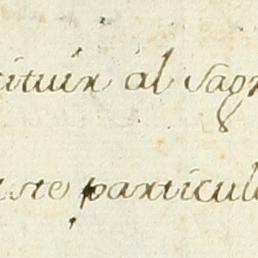 tituir al Sagr
iste particula